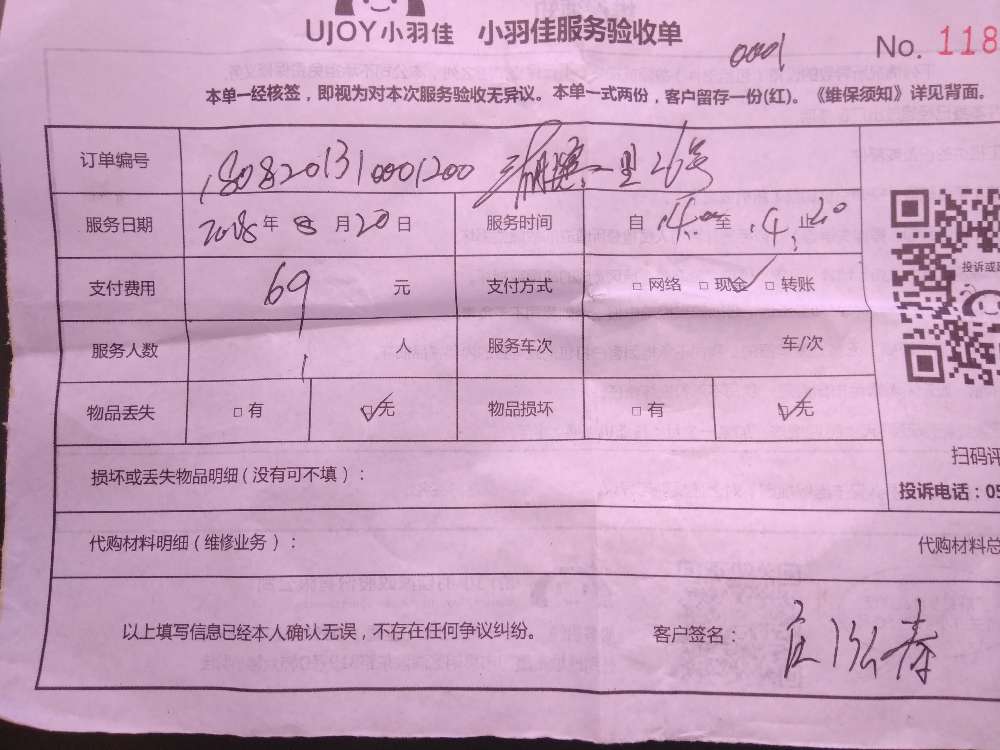 UJOY小羽佳 小羽佳服务验收单
0001
No. 118
本单一经核签，即视为对本次服务验收无异议。本单一式两份，客户留存一份(红)。《维保须知》详见背面。
订单编号 1808201310001200 一里26号
服务日期 2018年8月20日 服务时间 自 至 止
支付费用 69 元 支付方式 □ 网络 □ 现金 ✓ □ 转账
服务人数 1 人 服务车次 车/次
物品丢失 □ 有 ☑ 无 物品损坏 □ 有 ☑ 无
投诉或
损坏或丢失物品明细（没有可不填）：
扫码评
投诉电话：05
代购材料明细（维修业务）：
代购材料总
以上填写信息已经本人确认无误，不存在任何争议纠纷。 客户签名：庄